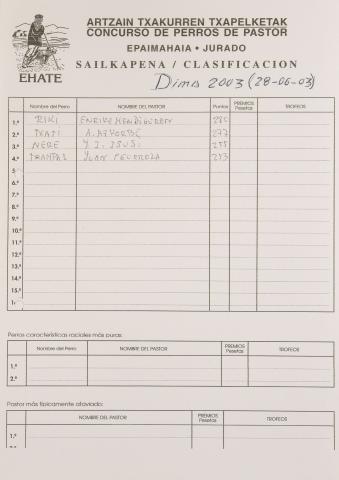 ARTZAIN TXAKURREN TXAPELKETAK
CONCURSO DE PERROS DE PASTOR
EPAIMAHAIA • JURADO
EHATE
SAILKAPENA / CLASIFICACION
Dima 2003 (28-06-03)
Nombre del Perro NOMBRE DEL PASTOR Puntos PREMIOS Pesetas TROFEOS
1.º RIKI ENRIKE MENDIGUREN
2.º A. 277
3.º NERE J. I. ISUSI
4.º JUAN
5.º
6.º
7.º
8.º
9.º
10.º
11.º
12.º
13.º
14.º
15.º
Perros características raciales más puras:
Nombre del Perro NOMBRE DEL PASTOR PREMIOS Pesetas TROFEOS
1.º
2.º
Pastor más típicamente ataviado:
NOMBRE DEL PASTOR PREMIOS Pesetas TROFEOS
1.º